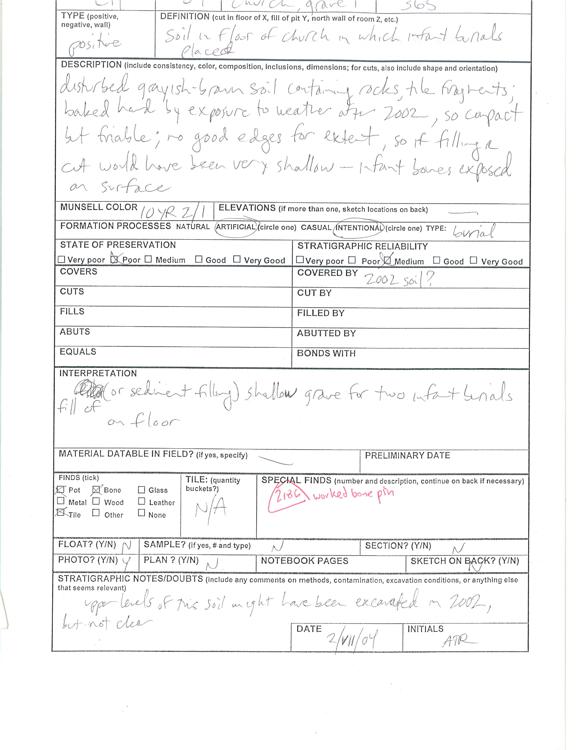 church, grave 1 365
TYPE (positive, negative, wall)
positive
DEFINITION (cut in floor of X, fill of pit Y, north wall of room Z, etc.)
Soil in floor of church in which infant burials
placed
DESCRIPTION (include consistency, color, composition, inclusions, dimensions; for cuts, also include shape and orientation)
disturbed grayish-brown soil containing rocks, tile fragments;
baked hard by exposure to weather after 2002, so compact
but friable; no good edges for extent, so if filling a
cut would have been very shallow – infant bones exposed
on surface
MUNSELL COLOR 10YR 2/1 ELEVATIONS (if more than one, sketch locations on back) —
FORMATION PROCESSES NATURAL ARTIFICIAL (circle one) CASUAL INTENTIONAL (circle one) TYPE: burial
STATE OF PRESERVATION STRATIGRAPHIC RELIABILITY
Very poor Poor Medium Good Very Good Very poor Poor Medium Good Very Good
COVERS COVERED BY 2002 soil?
CUTS CUT BY
FILLS FILLED BY
ABUTS ABUTTED BY
EQUALS BONDS WITH
INTERPRETATION
(or sediment filling) shallow grave for two infant burials
fill of
on floor
MATERIAL DATABLE IN FIELD? (if yes, specify) — PRELIMINARY DATE
FINDS (tick)
Pot Bone Glass
Metal Wood Leather
Tile Other None
TILE: (quantity buckets?)
N/A
SPECIAL FINDS (number and description, continue on back if necessary)
2186 worked bone pin
FLOAT? (Y/N) N SAMPLE? (if yes, # and type) N SECTION? (Y/N) N
PHOTO? (Y/N) Y PLAN ? (Y/N) N NOTEBOOK PAGES SKETCH ON BACK? (Y/N) N
STRATIGRAPHIC NOTES/DOUBTS (include any comments on methods, contamination, excavation conditions, or anything else
that seems relevant)
upper levels of this soil might have been excavated in 2002,
but not clear
DATE 2/VII/04 INITIALS ATR